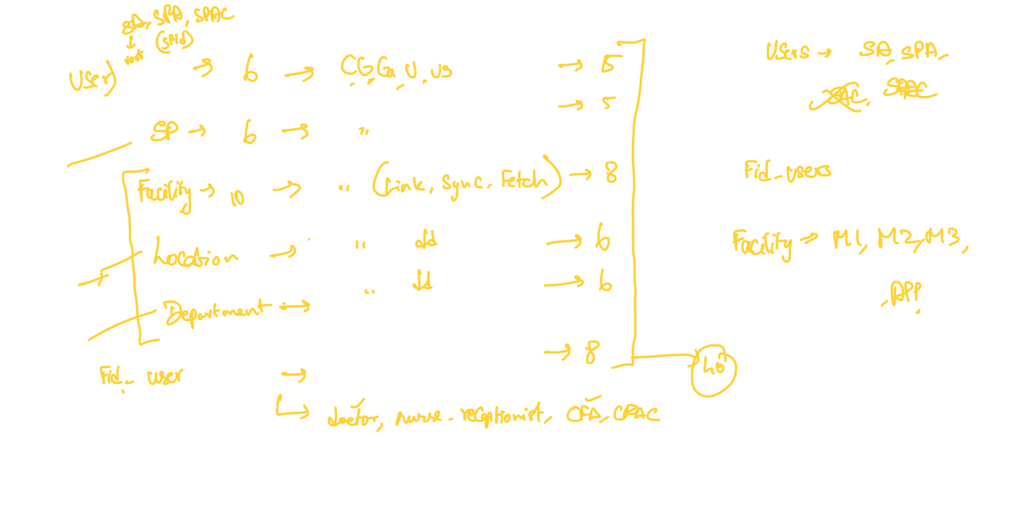 SA, SPA, SPAC
↓ root (spid)
User) → 6 → CG Ga, U, us → 5
→ 5
SP → 6 → "
Facility → 10 → " (Link, Sync, Fetch) → 8
Location → " → 6
Department → " → 6
→ 8
Fid_user →
doctor, nurse, receptionist, CFA, CPAC
40
Users → SA, SPA,
SAC, SPAC
Fid_users
Facility → M1, M2, M3,
, APP